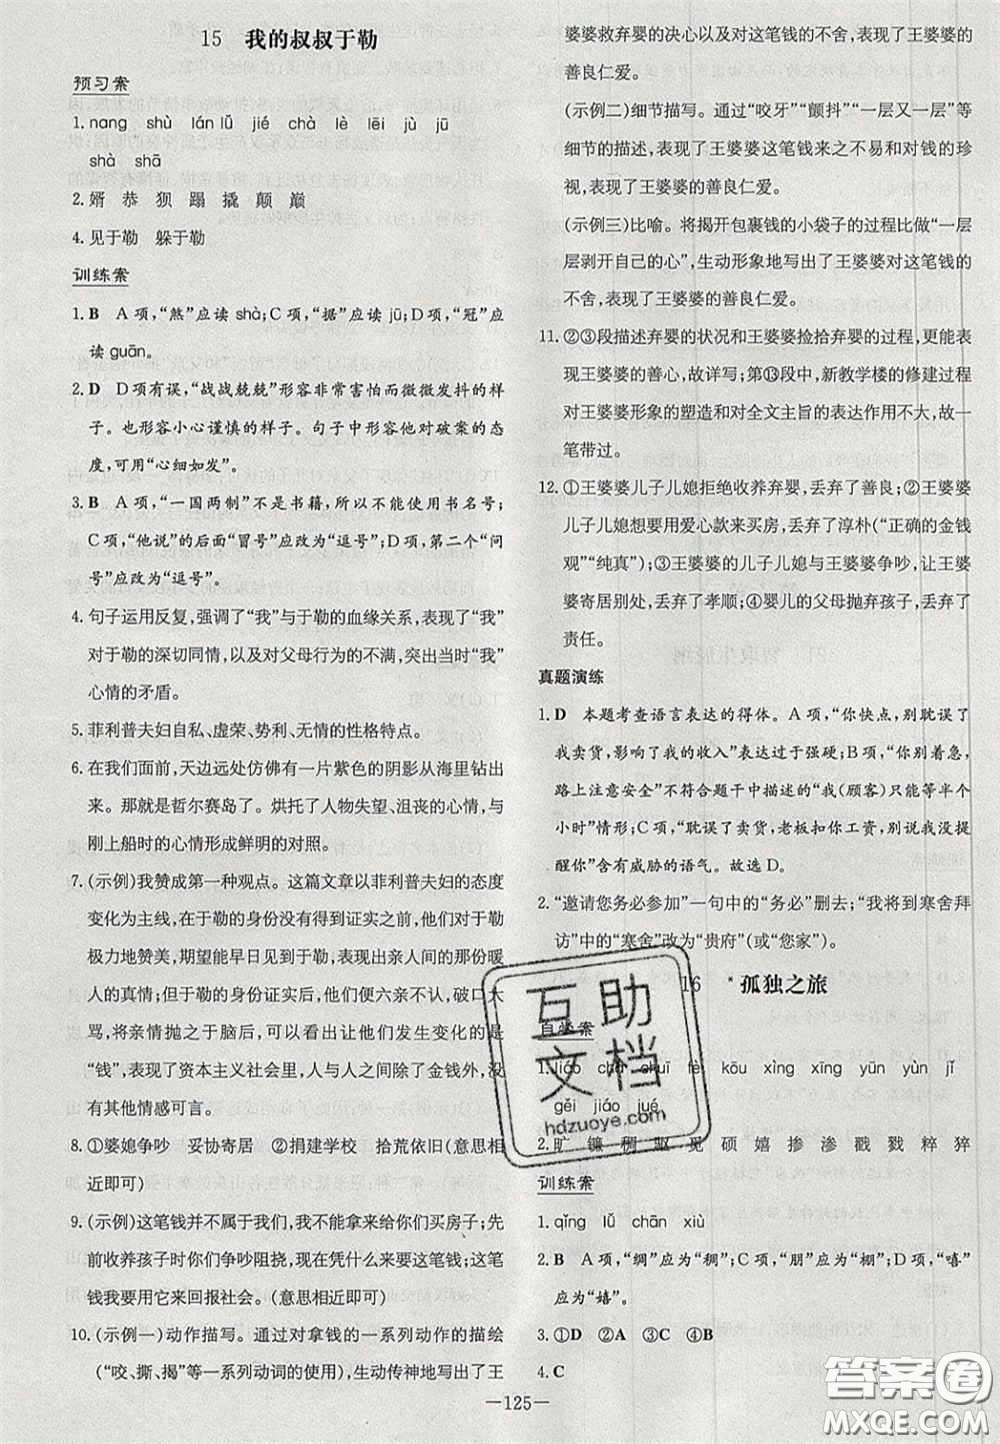 15 我的叔叔于勒
预习案
1. nang shù lán lǚ jié chà lè lēi jù jū
shà shā
2. 婿 恭 狈 蹋 撬 颠 巅
4. 见于勒 躲于勒
训练案
1. B A项,“煞”应读 shà;C项,“据”应读 jū;D项,“冠”应
读 guān。
2. D D项有误,“战战兢兢”形容非常害怕而微微发抖的样
子。也形容小心谨慎的样子。句子中形容他对破案的态
度,可用“心细如发”。
3. B A项,“一国两制”不是书籍,所以不能使用书名号;
C项,“他说”的后面“冒号”应改为“逗号”,第二个“问
号”应改为“逗号”。
4. 句子运用反复,强调了“我”与于勒的血缘关系,表现了“我”
对于勒的深切同情,以及对父母行为的不满,突出当时“我”
心情的矛盾。
5. 菲利普夫妇自私、虚荣、势利、无情的性格特点。
6. 在我们面前,天边远处仿佛有一片紫色的阴影从海里钻出
来。那就是哲尔赛岛了。烘托了人物失望、沮丧的心情,与
刚上船时的心情形成鲜明的对照。
7. (示例)我赞成第一种观点。这篇文章以菲利普夫妇的态度
变化为主线,在于勒的身份没有得到证实之前,他们对于勒
极力地赞美,期望能早日见到于勒,表现出亲人间的那份暖
人的真情;但于勒的身份证实后,他们便六亲不认,破口大
骂,将亲情抛之于脑后,可以看出使他们发生变化的是
“钱”,表现了资本主义社会里,人与人之间除了金钱外,没
有其他情感可言。
8. ①婆媳争吵 妥协寄居 ②捐建学校 拾荒依旧(意思相
近即可)
9. (示例)这笔钱并不属于我们,我不能拿来给你们买房子;先
前收养孩子时你们争吵阻挠,现在凭什么来要这笔钱;这笔
钱我要用它来回报社会。(意思相近即可)
10. (示例一)动作描写。通过对拿钱的一系列动作的描绘
(“咬、撕、揭”等一系列动词的使用),生动传神地写出了王
婆婆救弃婴的决心以及对这笔钱的不舍,表现了王婆婆的
善良仁爱。
(示例二)细节描写。通过“咬牙”“颤抖”“一层又一层”等
细节的描述,表现了王婆婆这笔钱来之不易和对钱的珍
视,表现了王婆婆的善良仁爱。
(示例三)比喻。将揭开包裹钱的小袋子的过程比做“一层
层剥开自己的心”,生动形象地写出了王婆婆对这笔钱的
不舍,表现了王婆婆的善良仁爱。
11. ②③段描述弃婴的状况和王婆婆捡拾弃婴的过程,更能表
现王婆婆的善心,故详写;第⑬段中,新教学楼的修建过程
对王婆婆形象的塑造和对全文主旨的表达作用不大,故一
笔带过。
12. ①王婆婆儿子儿媳拒绝收养弃婴,丢弃了善良;②王婆婆
儿子儿媳想要用爱心款来买房,丢弃了淳朴(“正确的金钱
观”“纯真”);③王婆婆的儿子儿媳与王婆婆争吵,让王婆
婆寄居别处,丢弃了孝顺;④婴儿的父母抛弃孩子,丢弃了
责任。
真题演练
1. D 本题考查语言表达的得体。A项,“你快点,别耽误了
我卖货,影响了我的收入”表达过于强硬;B项,“你别着急,
路上注意安全”不符合题干中描述的“我(顾客)只能等半个
小时”情形;C项,“耽误了卖货,老板扣你工资,别说我没提
醒你”含有威胁的语气。故选D。
2. “邀请您务必参加”一句中的“务必”删去;“我将到寒舍拜
访”中的“寒舍”改为“贵府”(或“您家”)。
16 *孤独之旅
自学案
1. jiáo chá chuī fèi kōu xīng yūn yùn jǐ
gěi jiáo jué
2. 旷 镰 稠 驱 觅 硕 嬉 掺 渗 戳 戮 粹 猝
训练案
1. qǐng lǚ chān xiù
2. B A项,“绸”应为“稠”;C项,“朋”应为“棚”;D项,“嘻”
应为“嬉”。
3. ①D ②A ③C ④B
4. C
—125—
互助
文档
hdzuoye.com
答案圈
MXQE.COM